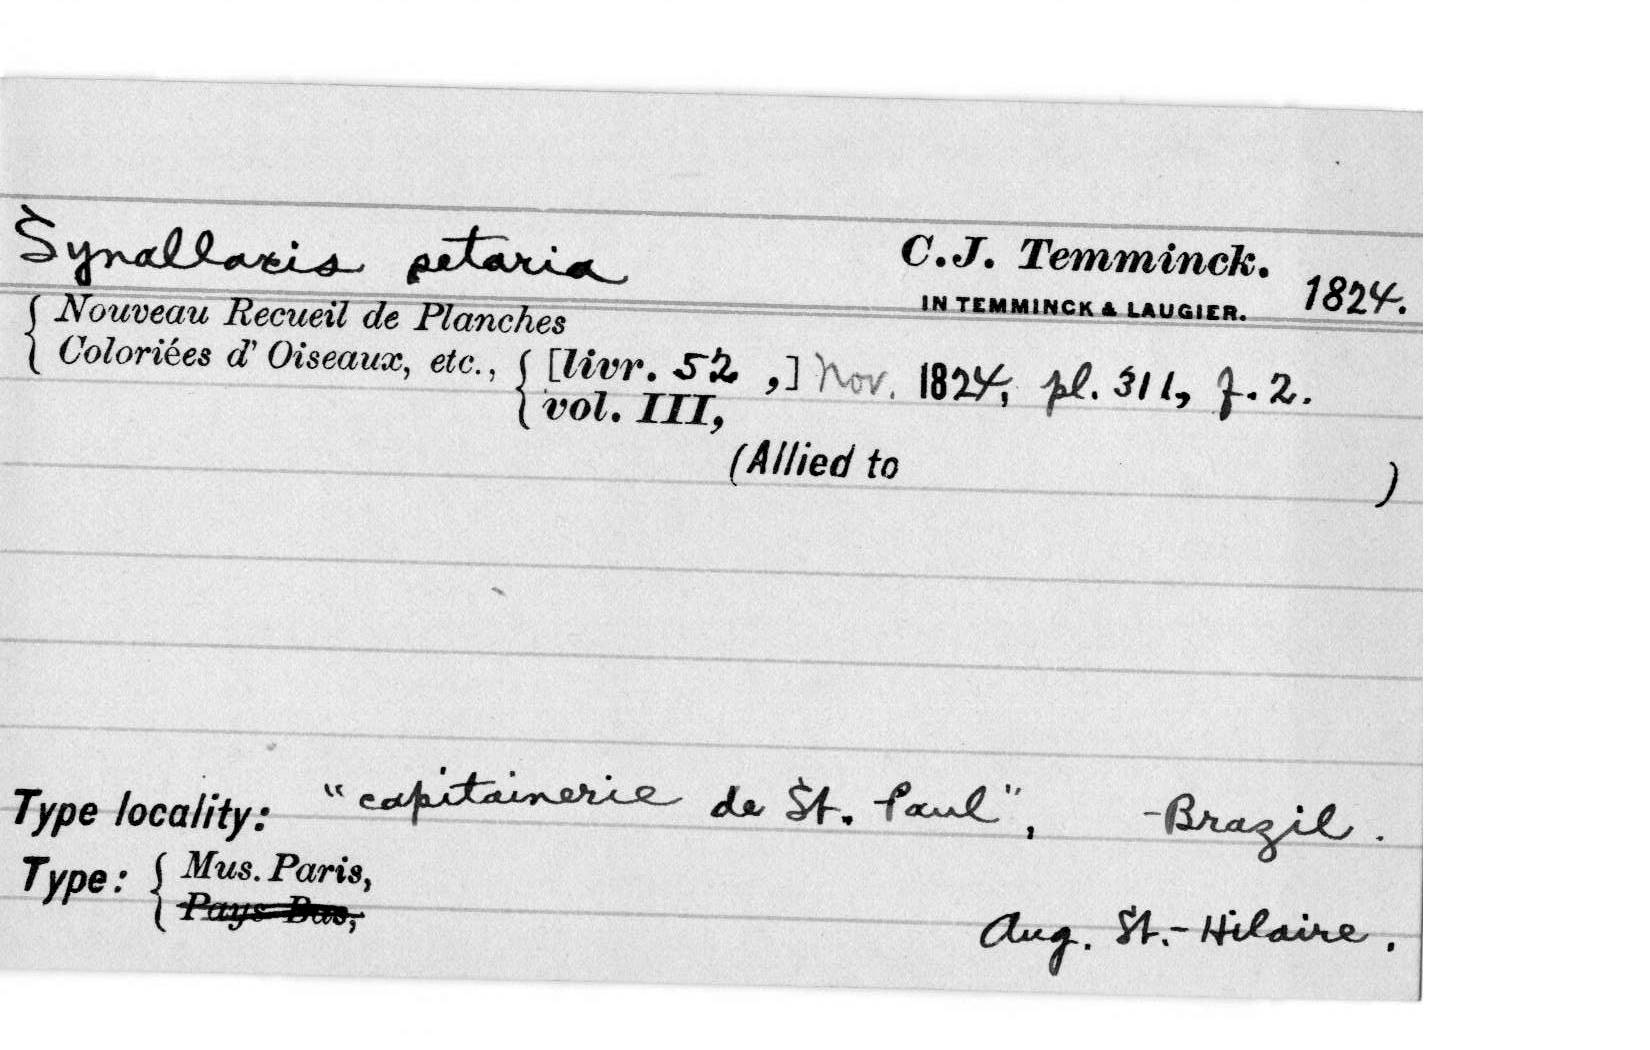 Synallaxis setaria C.J. Temminck. 1824.
IN TEMMINCK & LAUGIER.
Nouveau Recueil de Planches
Coloriées d'Oiseaux, etc., [livr. 52 ,] Nov. 1824, pl. 311, f. 2.
vol. III,
(Allied to )
Type locality: "capitainerie de St. Paul", -Brazil.
Type: Mus. Paris,
Pays-Bas,
Aug. St.-Hilaire.